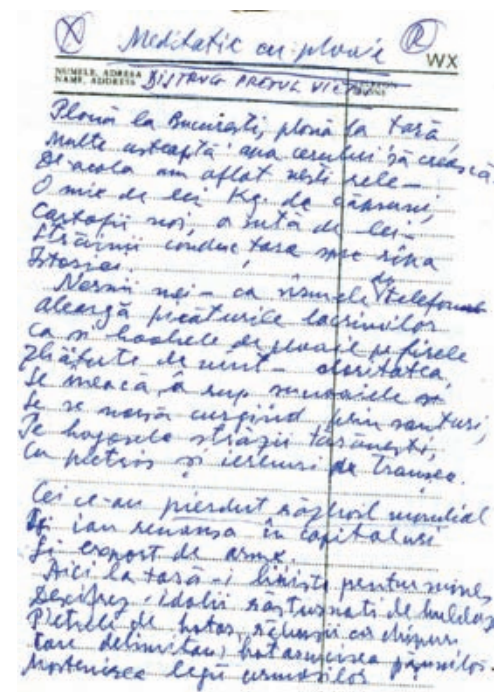 Meditație cu ploaie
WX
NUMELE, ADRESA
NAME, ADDRESS DISTRUG PREȚUL VIEȚII
Plouă la București, plouă la țară,
Multe așteaptă apa cerului să crească
De acolo am aflat vești rele –
O mie de lei Kg. de căpșuni,
Cartofii noi, o sută de lei –
Străinii conduc țara spre râpa
Istoriei.
Nervii mei – ca sârmele de telefoane
Aleargă picăturile lacrimilor
Ca și boabele de ploaie pe firele
de vânt –
Se îneacă, a rup și
Se se curgând prin șanțuri,
Pe străzii țărănești,
Cu pietriș și ierburi pe
Cei ce-au pierdut războiul mondial
Își iau revanșa în capitaluri
Și export de arme.
Aici la țară-i liniște pentru mine,
Dexifrez idolii răsturnați de buldozer
Pietrele de hotar, răbojii cu chipuri
Care delimitau hotărnicirea pășunilor.
Moștenirea legii urmașilor